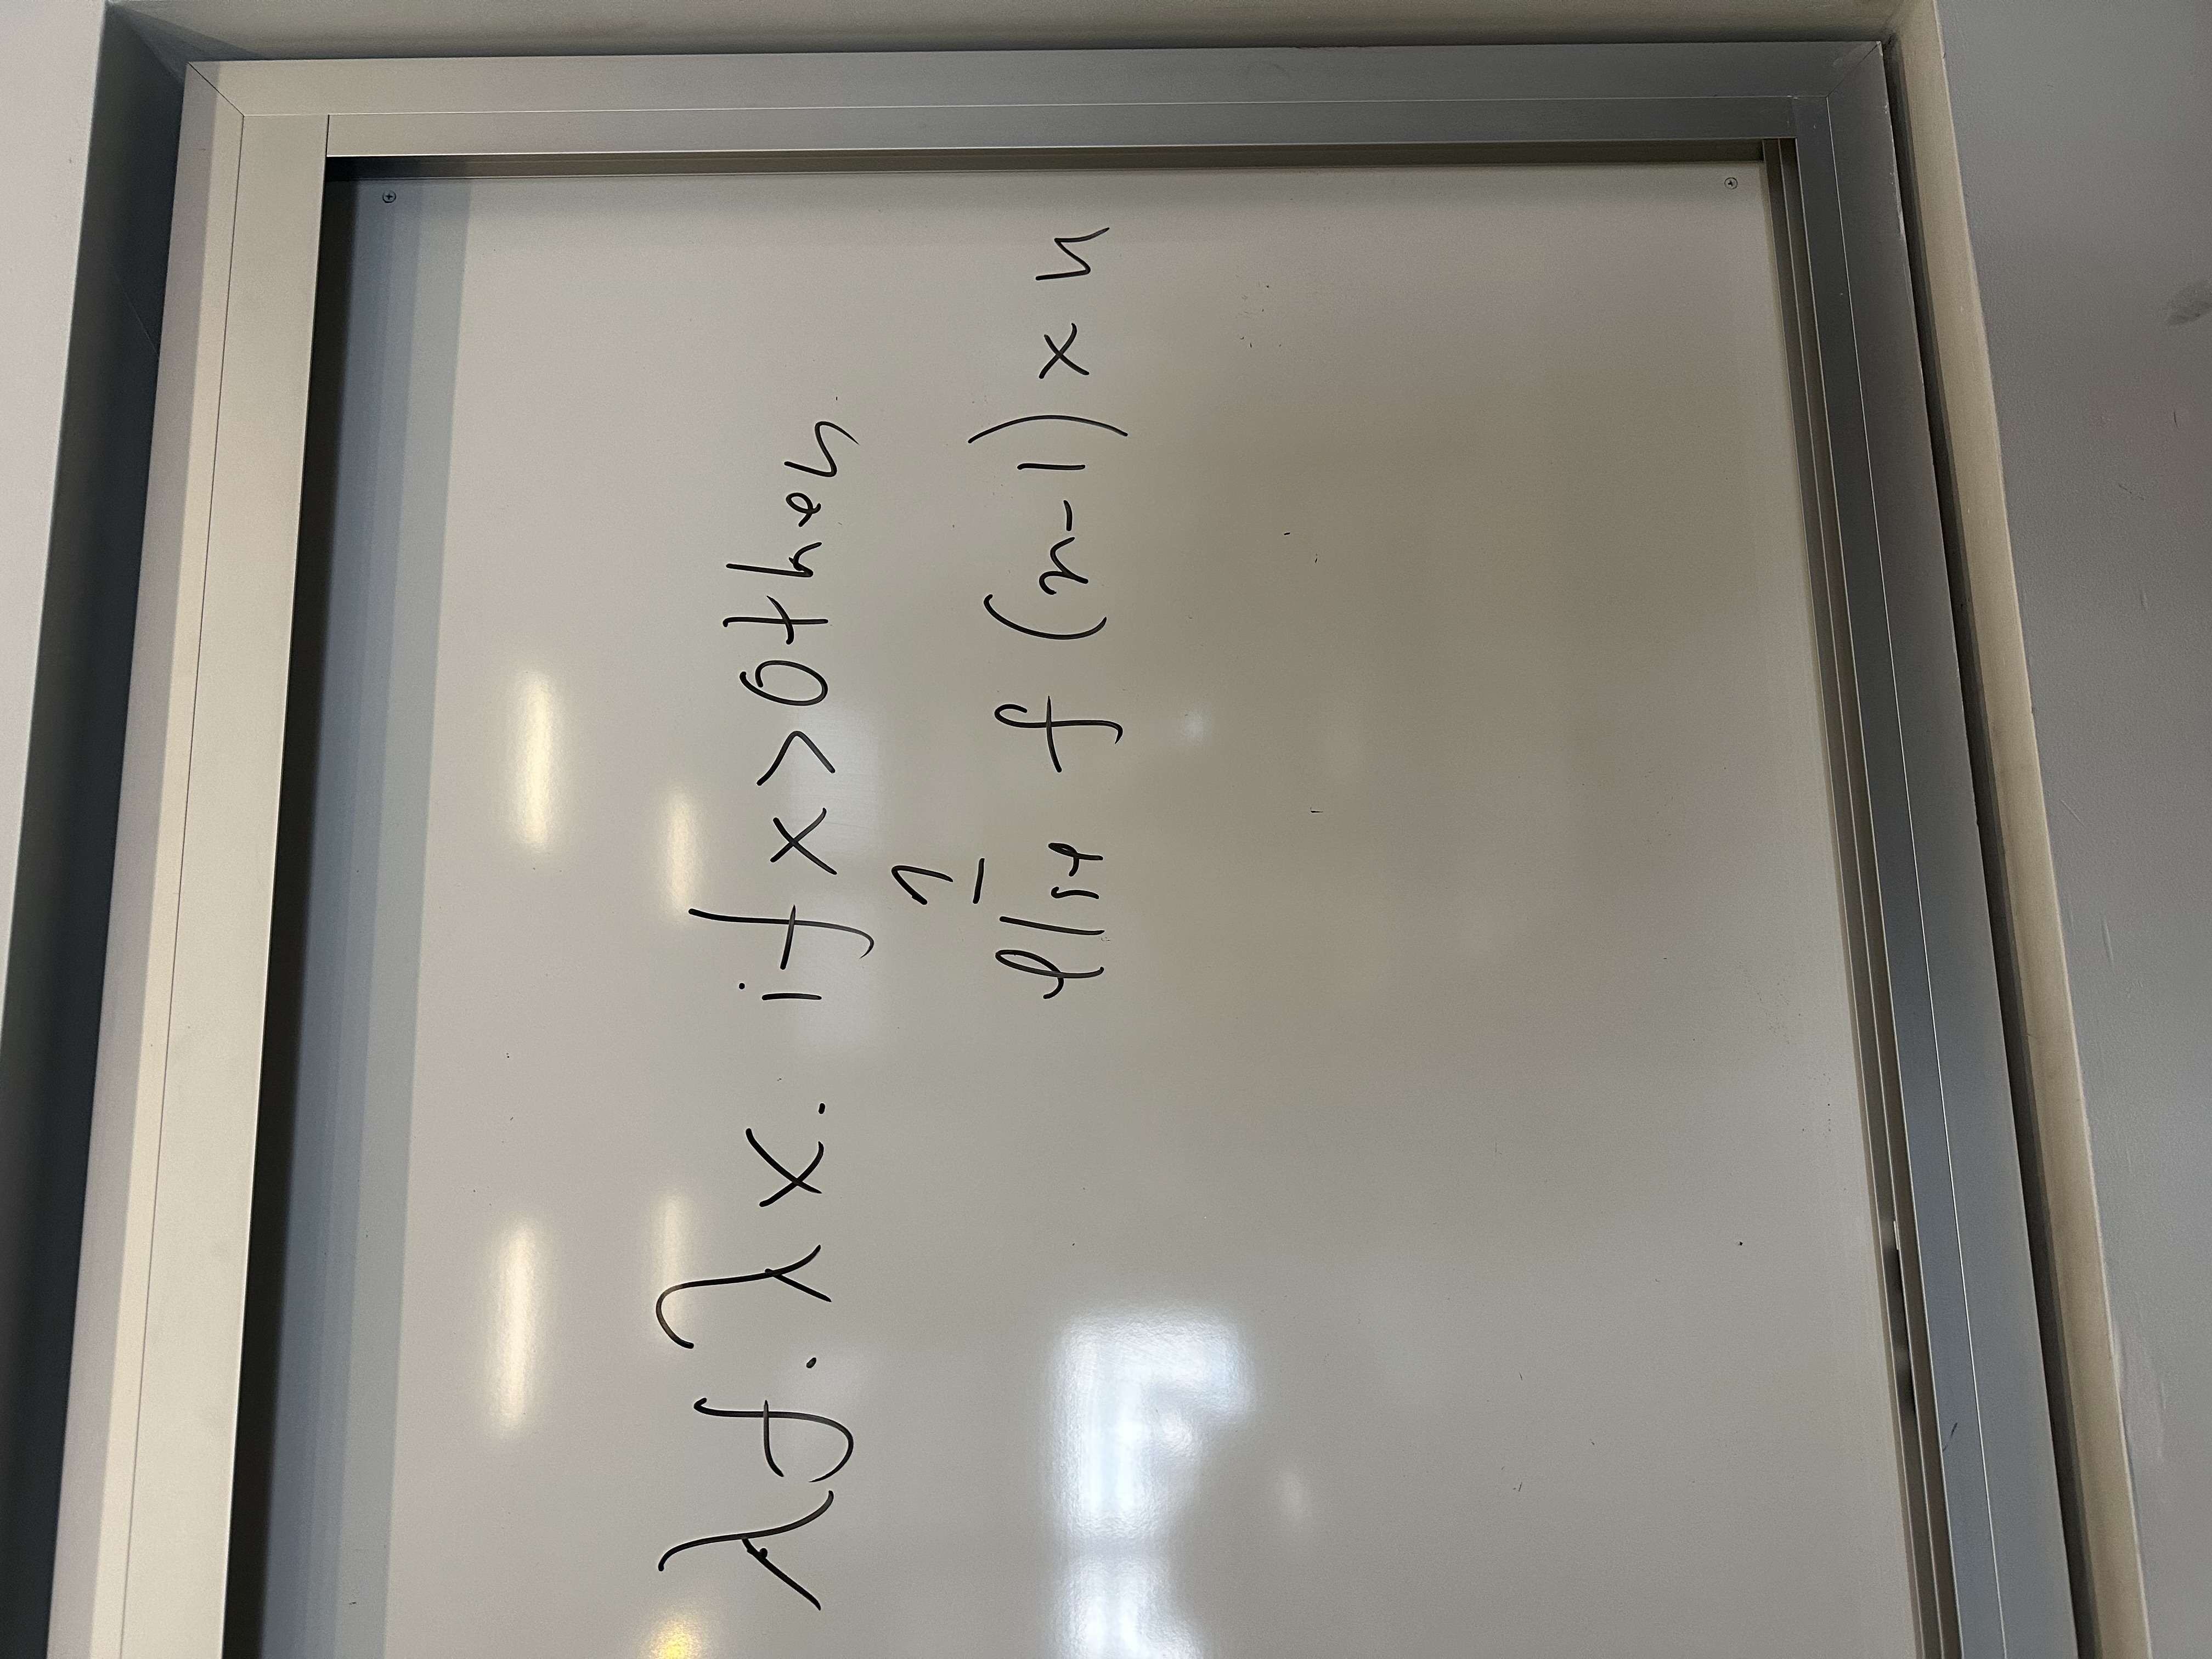 λf.λx. if x>0 then
1
else f (n-1) × n